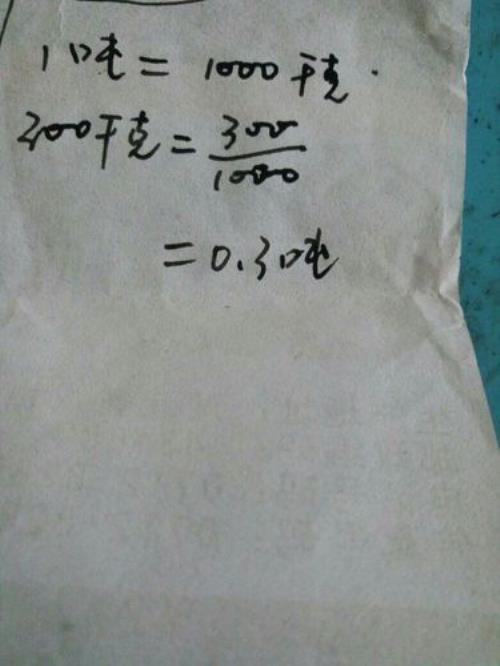 1吨 = 1000千克.
300千克 = 300/1000
= 0.3吨